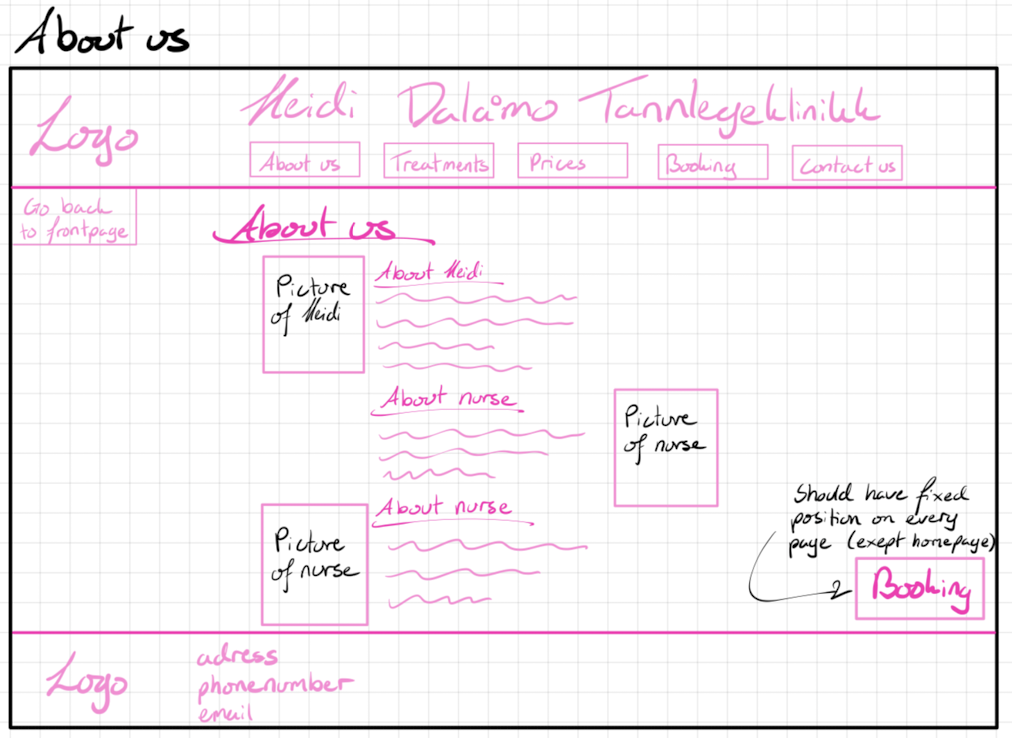 About us
Heidi Dalåmo Tannlegeklinikk
Logo
About us
Treatments
Prices
Booking
Contact us
Go back
to frontpage
About us
Picture
of Heidi
About Heidi
About nurse
Picture
of nurse
About nurse
Picture
of nurse
Should have fixed
position on every
page (exept homepage)
Booking
Logo
adress
phonenumber
email